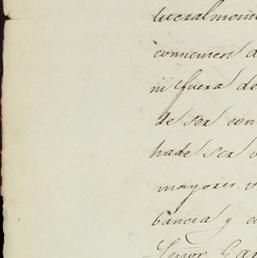 literalmente
convienen a
ni fuera de
de ser con
ha de ser v
mayores, v
bancia y c
Señor Gar